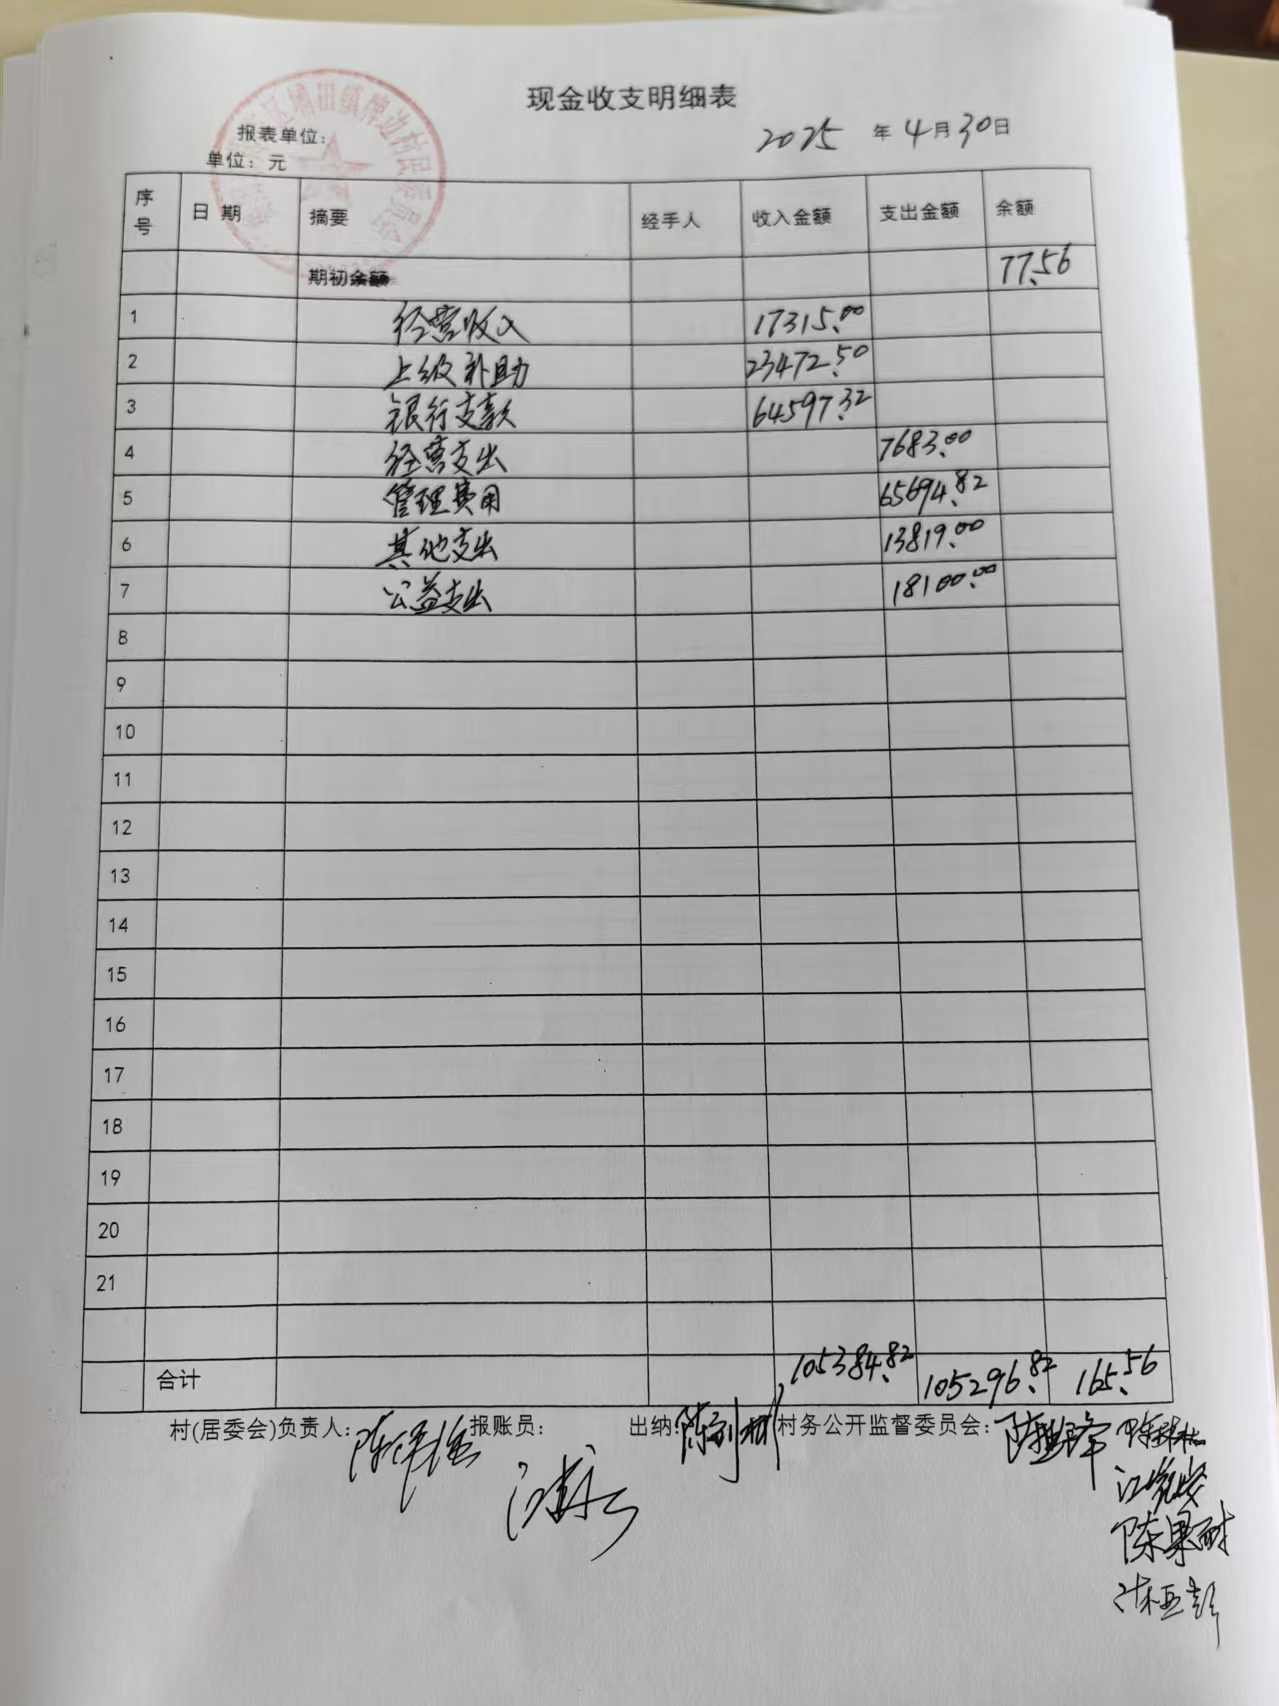 现金收支明细表
报表单位: 2025 年 4 月 30 日
单位: 元
序号 日 期 摘要 经手人 收入金额 支出金额 余额
期初余额 77.56
1 经营收入 17315.00
2 上级补助 23472.50
3 银行支款 64597.32
4 经营支出 7683.00
5 管理费用 65694.82
6 其他支出 13819.00
7 公益支出 18100.00
8
9
10
11
12
13
14
15
16
17
18
19
20
21
合计 105384.82 105296.82 165.56
村(居委会)负责人: 报账员: 出纳: 村务公开监督委员会: